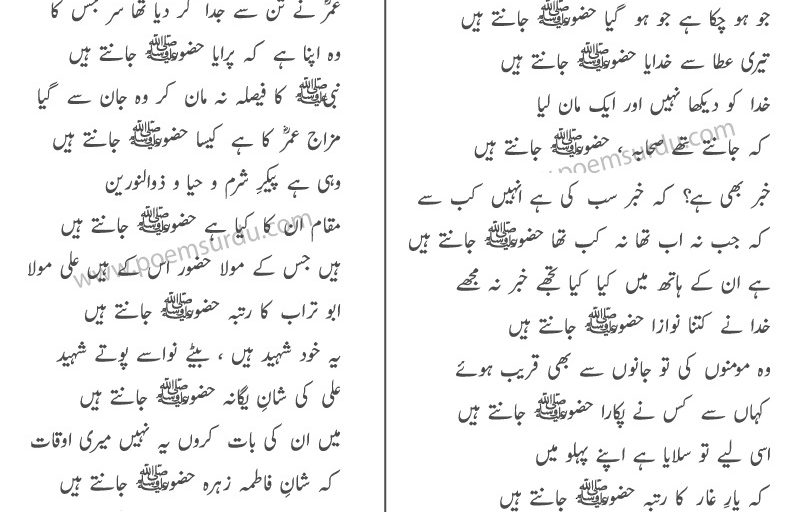 جو ہو چکا ہے جو ہو گیا حضورﷺ جانتے ہیں
تیری عطا سے خدایا حضورﷺ جانتے ہیں
خدا کو دیکھا نہیں اور ایک مان لیا
کہ جانتے تھے صحابہ ، حضورﷺ جانتے ہیں
خبر بھی ہے؟ کہ خبر سب کی ہے انہیں کب سے
کہ جب نہ اب تھا نہ کب تھا حضورﷺ جانتے ہیں
ہے ان کے ہاتھ میں کیا کیا تجھے خبر نہ مجھے
خدا نے کتنا نوازا حضورﷺ جانتے ہیں
وہ مومنوں کی تو جانوں سے بھی قریب ہوئے
کہاں سے کس نے پکارا حضورﷺ جانتے ہیں
اسی لیے تو سلایا ہے اپنے پہلو میں
کہ یارِ غار کا رتبہ حضورﷺ جانتے ہیں
عمرؓ نے تن سے جدا کر دیا تھا سر جس کا
وہ اپنا ہے کہ پرایا حضورﷺ جانتے ہیں
نبیﷺ کا فیصلہ نہ مان کر وہ جان سے گیا
مزاج عمرؓ کا ہے کیسا حضورﷺ جانتے ہیں
وہی ہے پیکرِ شرم و حیا و ذوالنورین
مقام ان کا کیا ہے حضورﷺ جانتے ہیں
ہیں جس کے مولا حضور اس کے ہیں علی مولا
ابو تراب کا رتبہ حضورﷺ جانتے ہیں
یہ خود شہید ہیں ، بیٹے نواسے پوتے شہید
علی کی شانِ یگانہ حضورﷺ جانتے ہیں
میں ان کی بات کروں یہ نہیں میری اوقات
کہ شانِ فاطمہ زہرہ حضورﷺ جانتے ہیں
www.poemsurdu.com
poemsurdu.com